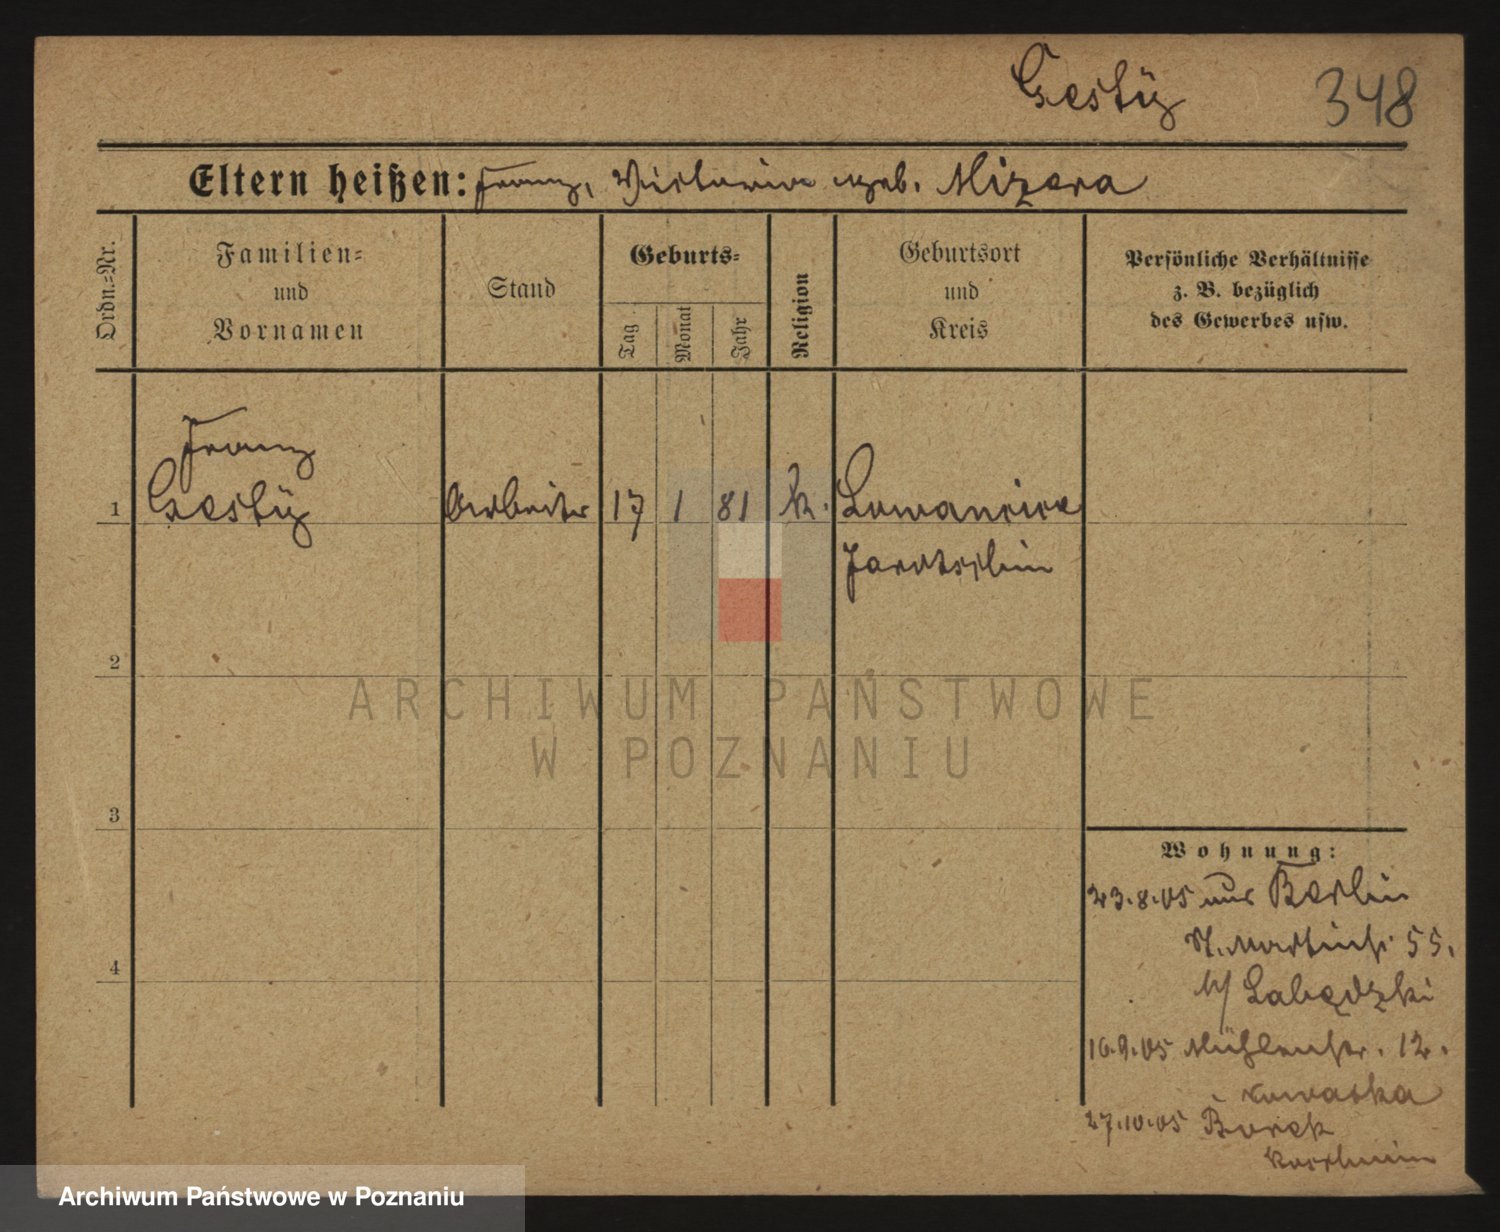 Gestÿ 348
Eltern heißen: Franz, Victoria geb. Mizera
Ordn.=Nr.
Familien=
und
Vornamen
Stand
Geburts=
Tag
Monat
Jahr
Religion
Geburtsort
und
Kreis
Persönliche Verhältnisse
z. B. bezüglich
des Gewerbes usw.
Franz
1 Gestÿ Arbeiter 17 1 81 k.
Jarotschin
2
3
4
Wohnung:
23.8.05 aus Berlin
St. Martinstr. 55.
b/ Labędzki
10.9.05 Mühlenstr. 12.
27.10.05 Borek
Koschmin
ARCHIWUM PAŃSTWOWE
W POZNANIU
Archiwum Państwowe w Poznaniu